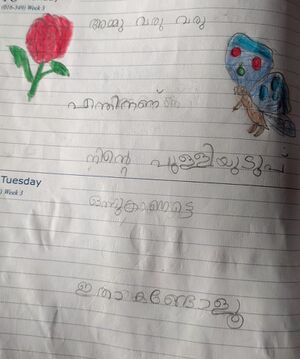 (016-349) Week 3
അമ്മു വരു വരു
എന്തിനാണ്
നിന്റെ പുള്ളിയുടുപ്പ്
Tuesday
) Week 3
ഒന്നുകാണട്ടെ
ഇതാ കണ്ടോളൂ